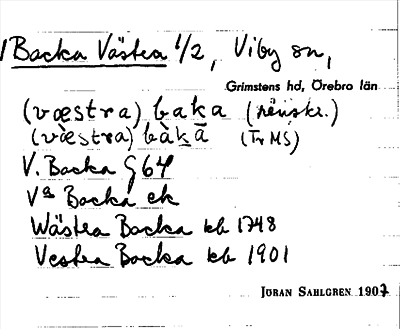 Backa Västra 1/2, Viby sn,
Grimstens hd, Örebro län
(væstra) baka (renskr.)
(væ̀stra) bàkā (Tr MS)
V. Backa G 64
Va Backa ek
Wästra Backa kb 1748
Vestra Backa kb 1901
JÖRAN SAHLGREN 1907